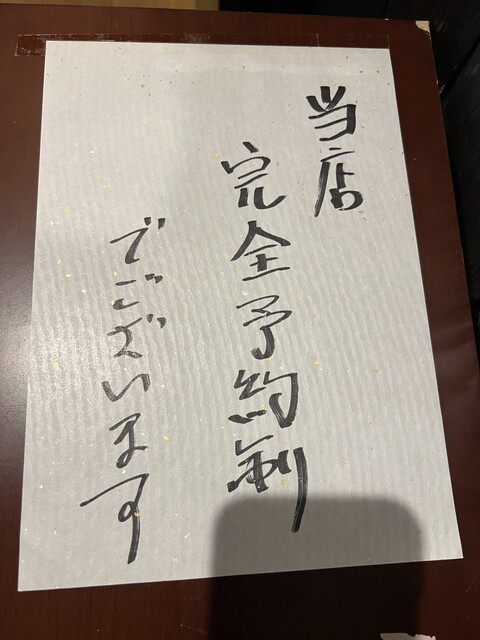 当店
完全予約制
でございます